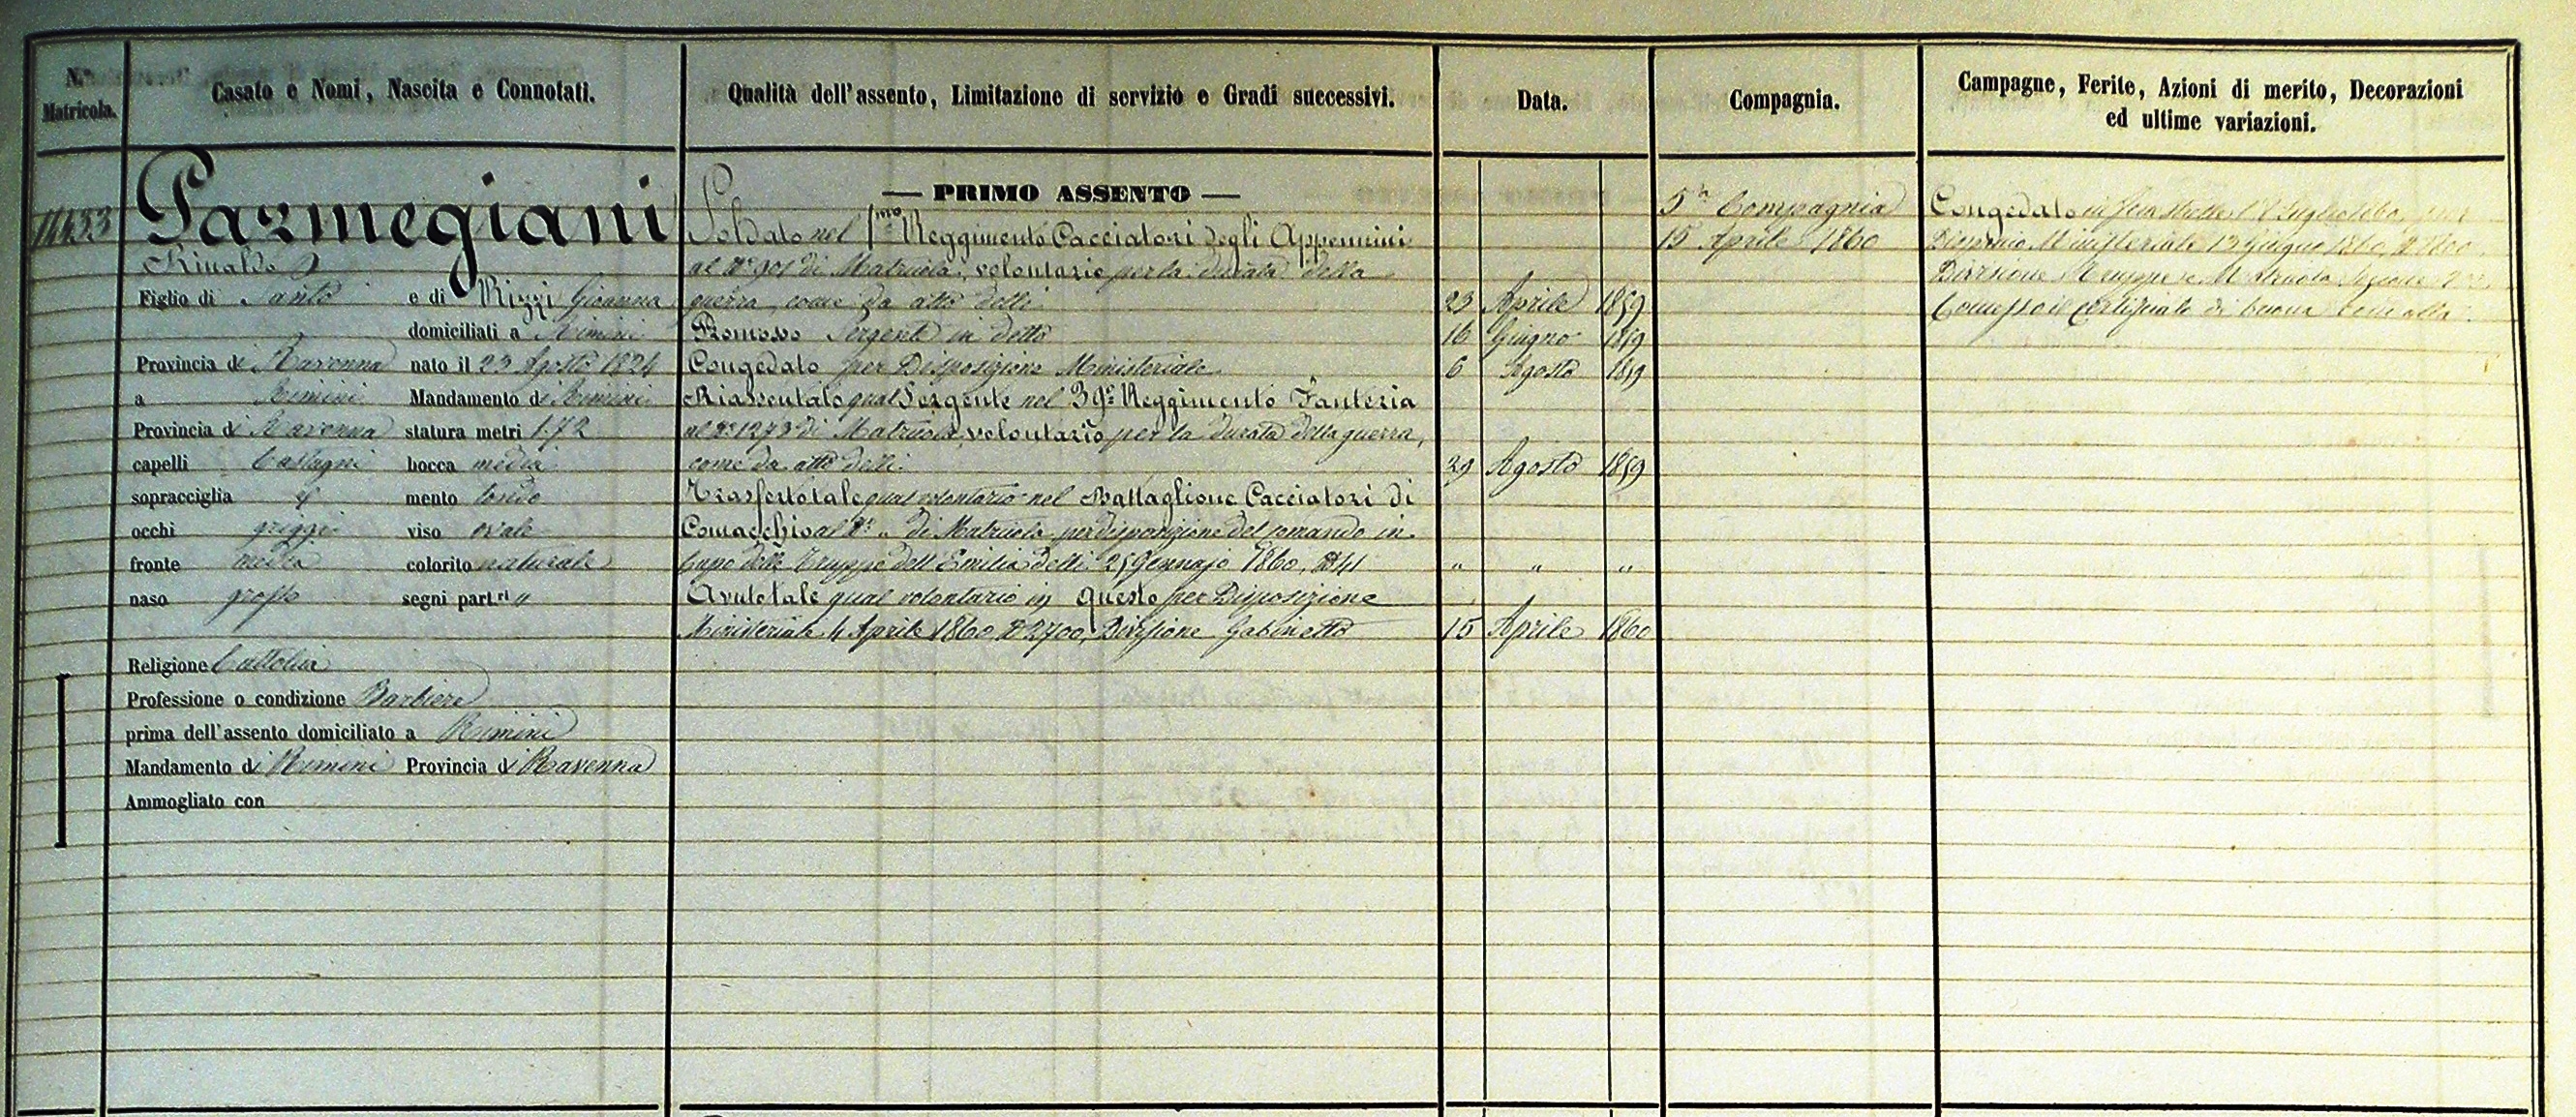 N.° Matricola.
Casato e Nomi, Nascita e Connotati.
Qualità dell'assento, Limitazione di servizio e Gradi successivi.
Data.
Compagnia.
Campagne, Ferite, Azioni di merito, Decorazioni
ed ultime variazioni.
11433
Parmegiani
Rinaldo
Figlio di Santo e di Rizzi Giovanna
domiciliati a Rimini
Provincia di Ravenna nato il 23 Agosto 1824
a Rimini Mandamento di Rimini
Provincia di Ravenna statura metri 1.72
capelli Castagni bocca media
sopracciglia id mento tondo
occhi griggi viso ovale
fronte media colorito naturale
naso grosso segni part.ri "
Religione Cattolica
Professione o condizione Barbiere
prima dell'assento domiciliato a Rimini
Mandamento di Rimini Provincia di Ravenna
Ammogliato con
— PRIMO ASSENTO —
Soldato nel 1mo Reggimento Cacciatori degli Appennini
al N° 901 di Matricola, volontario per la durata della
guerra, come da atto delli 23 Aprile 1859
Promosso Sergente in detto 16 Giugno 1859
Congedato per Disposizione Ministeriale 6 Agosto 1859
Riassentato qual Sergente nel 39° Reggimento Fanteria
al N° 1273 di Matricola, volontario per la durata della guerra,
come da atto delli 29 Agosto 1859
Trasferto tale qual volontario nel Battaglione Cacciatori di
Comacchio al N° " di Matricola, per disposizione del Comando in
Capo delle Truppe dell'Emilia delli 25 Gennajo 1860, N° 41 " " "
Avuto tale qual volontario in questo per Disposizione
Ministeriale 4 Aprile 1860 N° 2700, Divisione Gabinetto 15 Aprile 1860
5a Compagnia
15 Aprile 1860
Congedato Luglio 1860, per
Ministeriale 13 Giugno 1860, N° 1800,
Divisione Truppe e Matricola Sezione 2a.
Concesso il certificato di buona condotta.